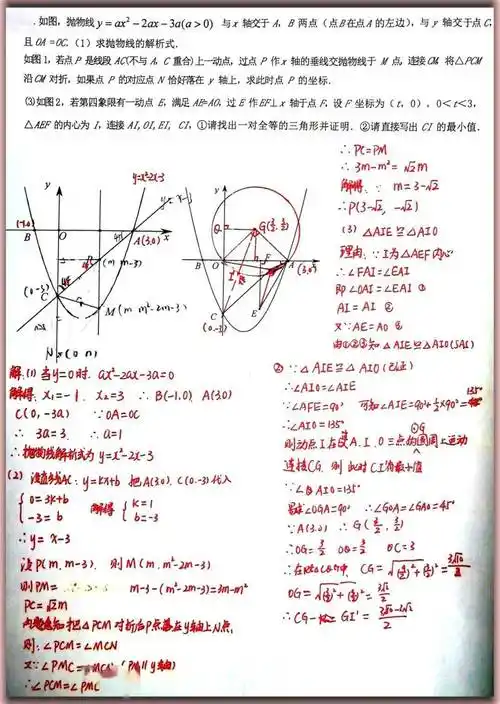 . 如图，抛物线y=ax²-2ax-3a(a>0) 与x轴交于A，B两点（点B在点A的左边），与y轴交于点C,
且OA=OC.（1）求抛物线的解析式.
如图1，若点P是线段AC(不与A，C重合)上一动点，过点P作x轴的垂线交抛物线于M点，连接CM将△PCM
沿CM对折，如果点P的对应点N恰好落在y轴上，求此时点P的坐标.
(3)如图2，若第四象限有一动点E，满足AE=AO，过E作EF⊥x轴于点F，设F坐标为（t，0），0<t<3，
△AEF的内心为I，连接AI,OI,EI，CI，①请找出一对全等的三角形并证明. ②请直接写出CI的最小值.
y=x²-2x-3
y=x-3
(-1.0)
y
B
O
A(3.0)
x
P
(m m-3)
(0-3)
C
M(m m²-2m-3)
N
y
Q
G(3/2,3/2)
B
O
F
A
(3,0)
x
I'
I
E
C
(0,-3)
∴PC=PM
∴3m-m²=√2m
解得: m=3-√2
∴P(3-√2, -√2)
(3) △AIE≌△AIO
理由: ∵I为△AEF内心
∴∠FAI=∠EAI
即∠OAI=∠EAI ①
AI=AI ②
又∵AE=AO ③
由①②③知△AIE≌△AIO(SAS)
解:(1)当y=0时. ax²-2ax-3a=0
解得: x₁=-1. x₂=3 ∴B(-1.0) A(3.0)
C(0,-3a) ∵OA=OC
∴3a=3. ∴a=1
∴抛物线解析式为y=x²-2x-3
(2) 设直线AC: y=kx+b 把A(3.0). C(0.-3)代入
{0=3k+b
-3=b 解得 {k=1
b=-3
∴y=x-3
设P(m,m-3). 则M(m,m²-2m-3)
则PM= m-3-(m²-2m-3)=3m-m²
PC=√2m
把△PCM对折后P点落在y轴上N点,
则:∠PCM=∠MCN
又∵∠PMC=∠MCN (PM∥y轴)
∴∠PCM=∠PMC
② ∵△AIE≌△AIO(已证)
∴∠AIO=∠AIE
∵∠AFE=90° 可知∠AIE=90°+½×90°=135°
∴∠AIO=135°
则动点I在过A.I.O三点的⊙G圆周上运动
连接CG. 则此时CI有最小值
∵∠AIO=135°
∠OGA=90° ∴∠GOA=∠GAO=45°
∵A(3.0) ∴G(3/2,3/2)
∴QG=3/2 OQ=3/2 OC=3
∴在Rt△CQG中, CG=√(9/2)²+(3/2)²=3√10/2
OG=√(3/2)²+(3/2)²=3√2/2
∴CG-GI'=(3√10-3√2)/2